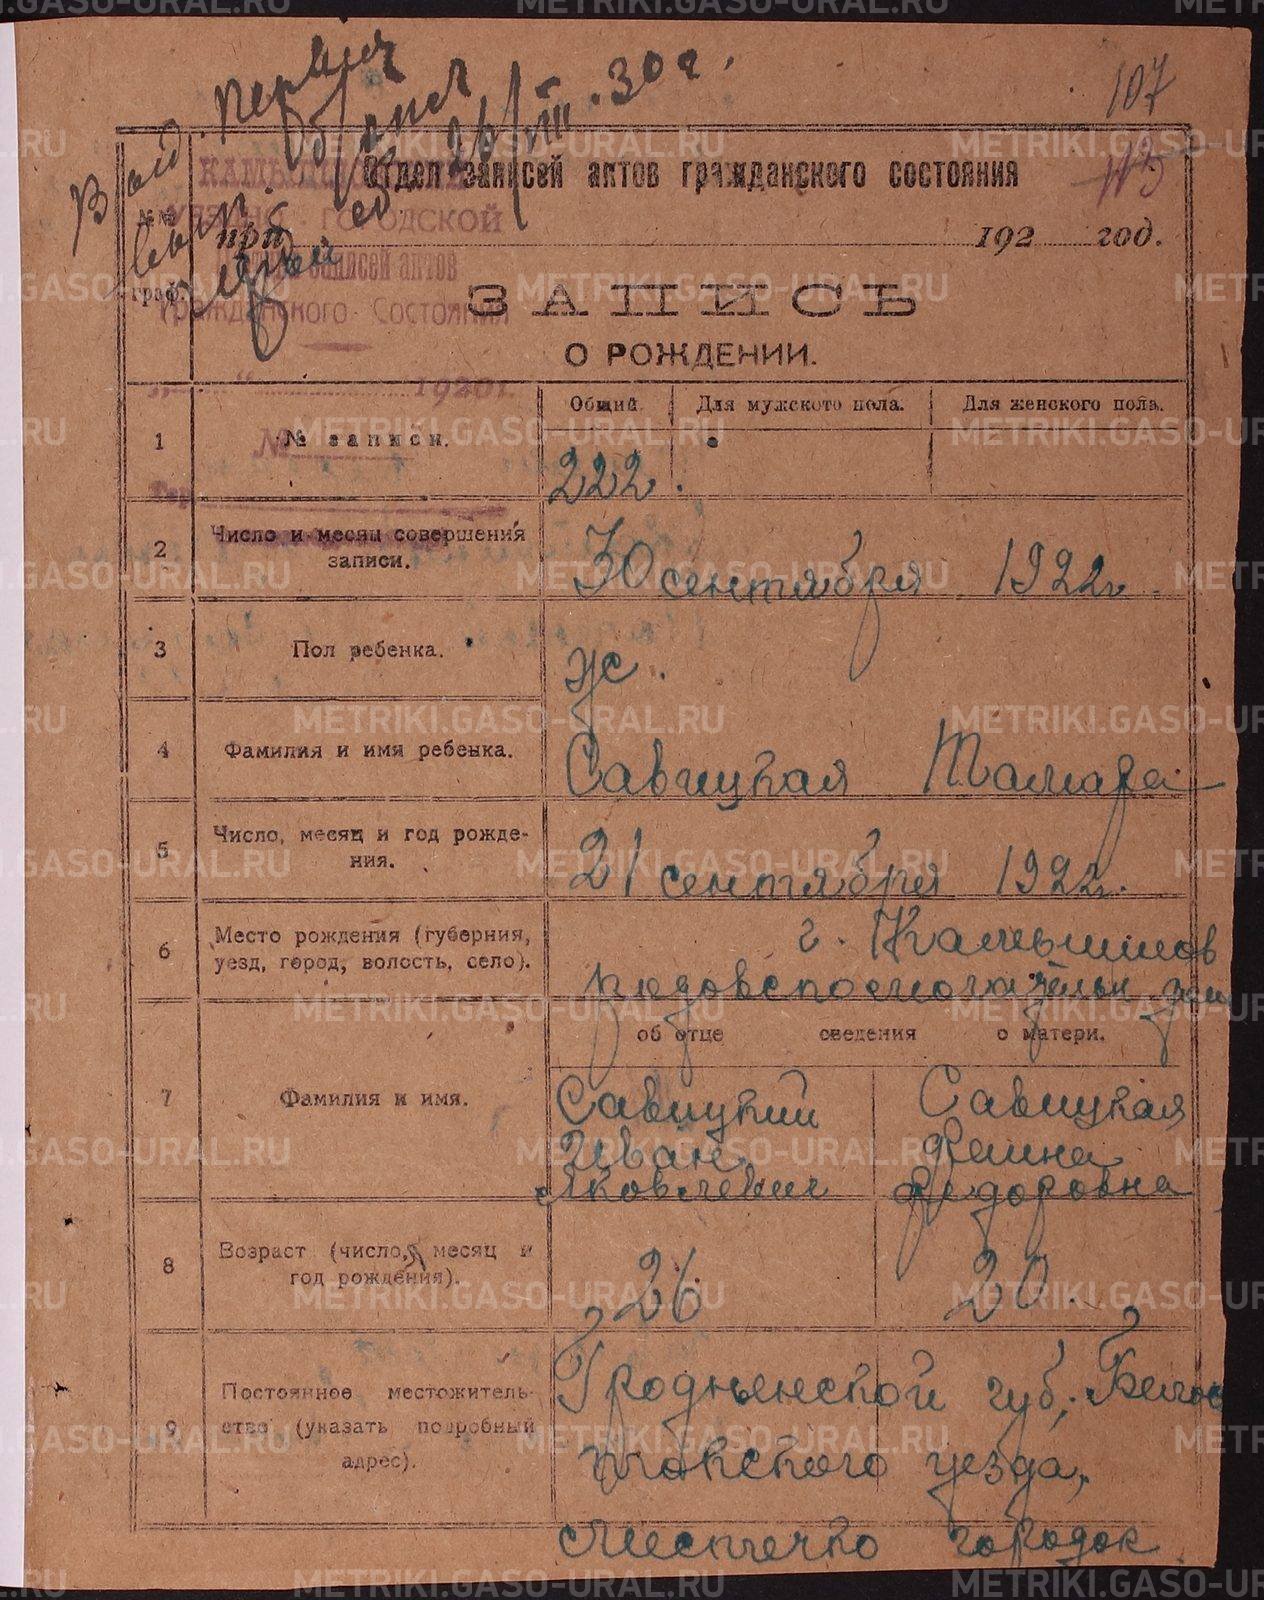 107
Выд. первая
26/VIII.30 г.
113
КАМЫШЛОВСКИЙ
УЕЗДНО ГОРОДСКОЙ
Отдел записей актов
Гражданского Состояния
„ “ 1920 г.
№
Отдел записей актов гражданского состояния
при 192 год.
№№ граф.
ЗАПИСЬ
О РОЖДЕНИИ.
Общий. Для мужского пола. Для женского пола.
1 № записи. 222.
2 Число и месяц совершения
записи.
30 сентября 1922 г.
3 Пол ребенка. ж.
4 Фамилия и имя ребенка. Савицкая Тамара
5 Число, месяц и год рожде-
ния.
21 сентября 1922 г.
6 Место рождения (губерния,
уезд, город, волость, село).
г. Камышлов
об отце сведения о матери.
7 Фамилия и имя.
Савицкий
Иван
Яковлевич
Савицкая
Фаина
Федоровна
8 Возраст (число, месяц и
год рождения).
26 20.
9 Постоянное местожитель-
ство (указать подробный
адрес).
Гродненской губ. Белос
токского уезда,
Местечко городок
METRIKI.GASO-URAL.RU